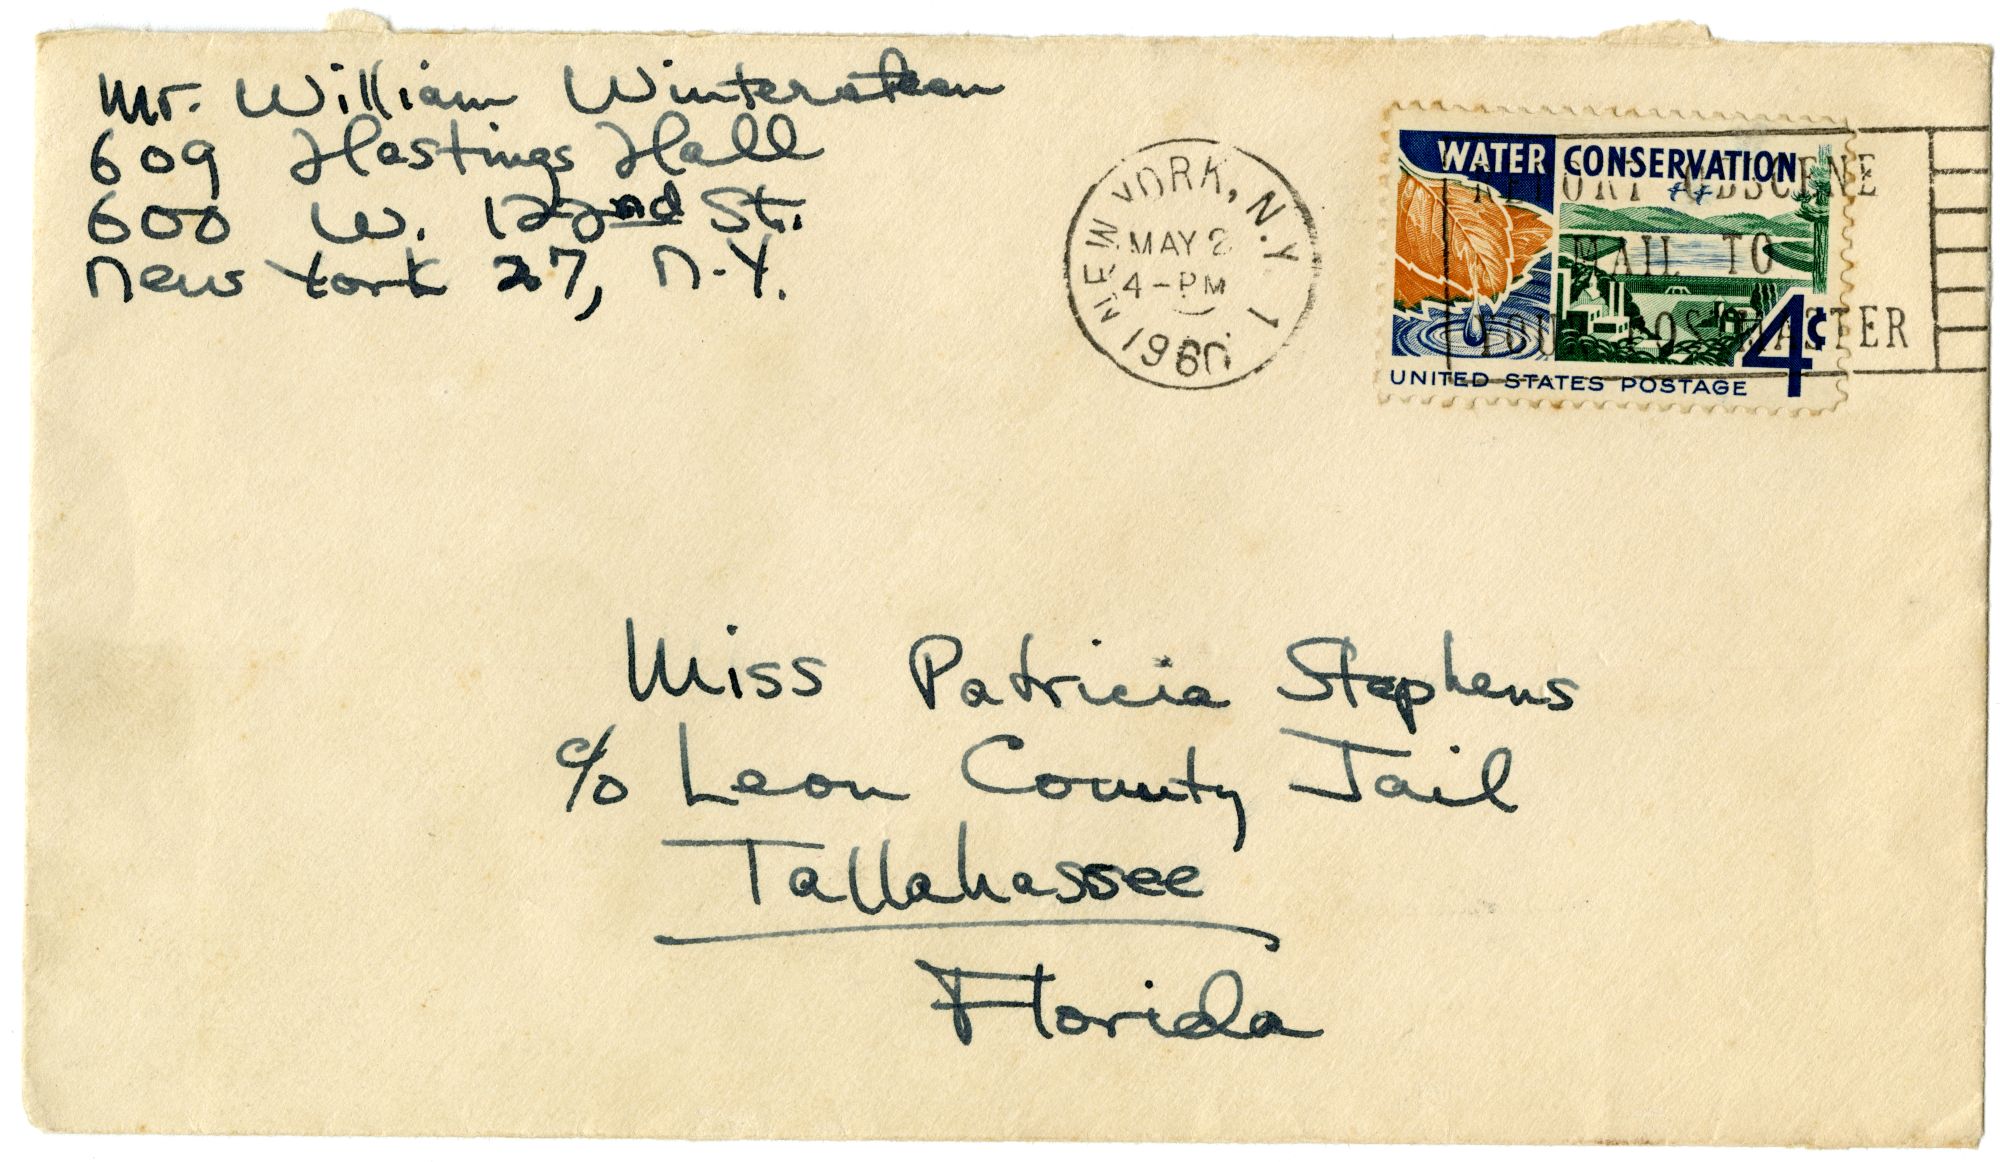 Mr. William Wintersteen
609 Hastings Hall
600 W. 122nd St.
New York 27, N.Y.
NEW YORK, N.Y. 1
MAY 2
4-PM
1960
WATER CONSERVATION
4¢
UNITED STATES POSTAGE
REPORT OBSCENE
MAIL TO
YOUR POSTMASTER
Miss Patricia Stephens
c/o Leon County Jail
Tallahassee
Florida